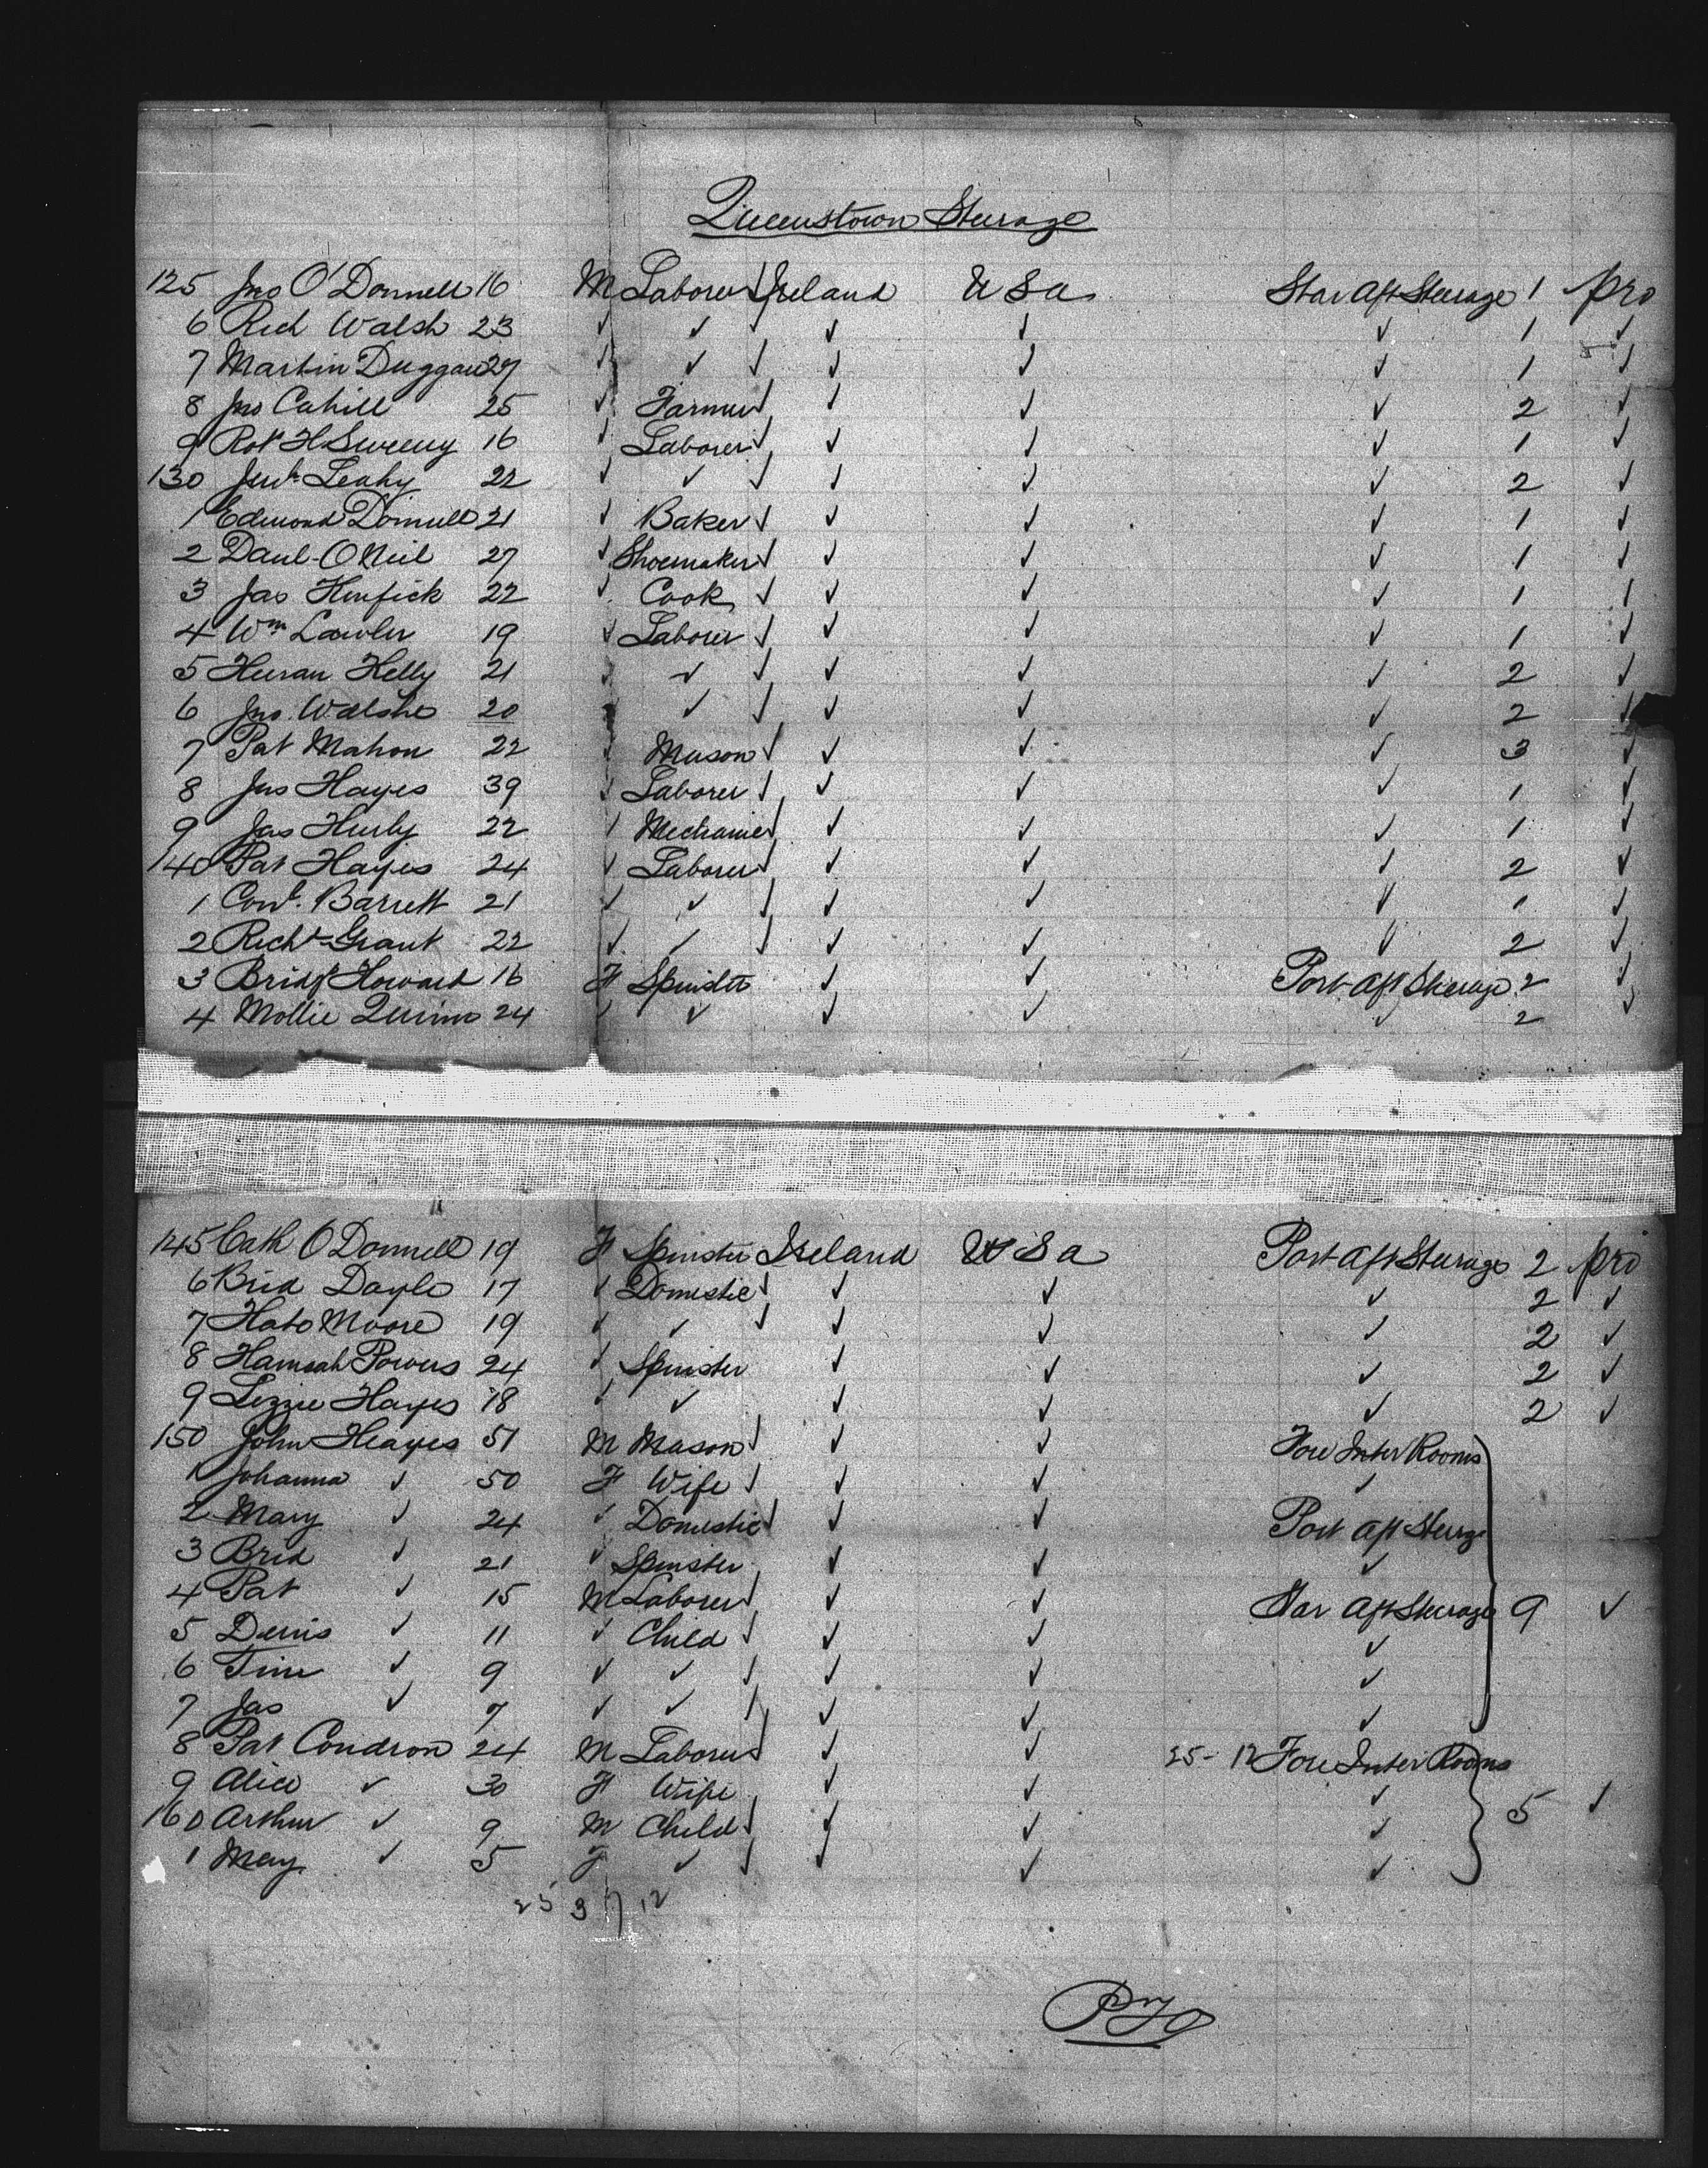 Queenstown Steerage
125 Jno O'Donnell 16 M Laborer Ireland U S a Star aft Steerage 1 pro
6 Rich Walsh 23 ✓ ✓ ✓ ✓ ✓ 1 ✓
7 Martin Duggan 27 ✓ ✓ ✓ ✓ ✓ ✓ 1 ✓
8 Jno Cahill 25 ✓ Farmer ✓ ✓ ✓ ✓ 2 ✓
9 Robt H Sweeny 16 ✓ Laborer ✓ ✓ ✓ ✓ 1 ✓
130 Leahy 22 ✓ ✓ ✓ ✓ ✓ ✓ 2 ✓
1 Edmond Donnell 21 ✓ Baker ✓ ✓ ✓ ✓ 1 ✓
2 Danl O Neil 27 ✓ Shoemaker ✓ ✓ ✓ ✓ 1 ✓
3 Jas 22 ✓ Cook ✓ ✓ ✓ ✓ 1 ✓
4 Wm Lawler 19 ✓ Laborer ✓ ✓ ✓ ✓ 1 ✓
5 Kelly 21 ✓ ✓ ✓ ✓ ✓ ✓ 2 ✓
6 Jno. Walshe 20 ✓ ✓ ✓ ✓ ✓ ✓ 2 ✓
7 Pat Mahon 22 ✓ Mason ✓ ✓ ✓ ✓ 3 ✓
8 Jas Hayes 39 ✓ Laborer ✓ ✓ ✓ ✓ 1 ✓
9 Jas Hurly 22 ✓ Mechanic ✓ ✓ ✓ ✓ 1 ✓
140 Pat Hayes 24 ✓ Laborer ✓ ✓ ✓ ✓ 2 ✓
1 Barrett 21 ✓ ✓ ✓ ✓ ✓ ✓ 1 ✓
2 Richd Grant 22 ✓ ✓ ✓ ✓ ✓ ✓ 2 ✓
3 Bridgt Howard 16 F Spinster ✓ ✓ Port aft Steerage 2 ✓
4 Mollie Quinn 24 ✓ ✓ ✓ ✓ ✓ 2 ✓
145 Cath O Donnell 19 F Spinster Ireland U S a Port aft Steerage 2 pro
6 Brid Doyle 17 ✓ Domestic ✓ ✓ ✓ ✓ 2 ✓
7 Kate Moore 19 ✓ ✓ ✓ ✓ ✓ ✓ 2 ✓
8 Hannah Powers 24 ✓ Spinster ✓ ✓ ✓ 2 ✓
9 Lizzie Hayes 18 ✓ ✓ ✓ ✓ ✓ 2 ✓
150 John Heayes 51 M Mason ✓ ✓ ✓ Fore Inter Rooms
1 Johanna ✓ 50 F Wife ✓ ✓ ✓ ✓
2 Mary ✓ 24 ✓ Domestic ✓ ✓ ✓ Port aft Sterge
3 Brid ✓ 21 ✓ Spinster ✓ ✓ ✓
4 Pat ✓ 15 M Laborer ✓ ✓ ✓ Star aft Steerage 9 ✓
5 Denis ✓ 11 ✓ Child ✓ ✓ ✓ ✓
6 Tim ✓ 9 ✓ ✓ ✓ ✓ ✓ ✓
7 Jas ✓ 7 ✓ ✓ ✓ ✓ ✓ ✓
8 Pat Condron 24 M Laborer ✓ ✓ ✓ 25-12 Fore Inter Rooms
9 Alice ✓ 30 F Wife ✓ ✓ ✓ 5 ✓
160 Arthur ✓ 9 M Child ✓ ✓ ✓ ✓
1 May ✓ 5 F ✓ ✓ ✓ ✓ ✓
25 3 7 12